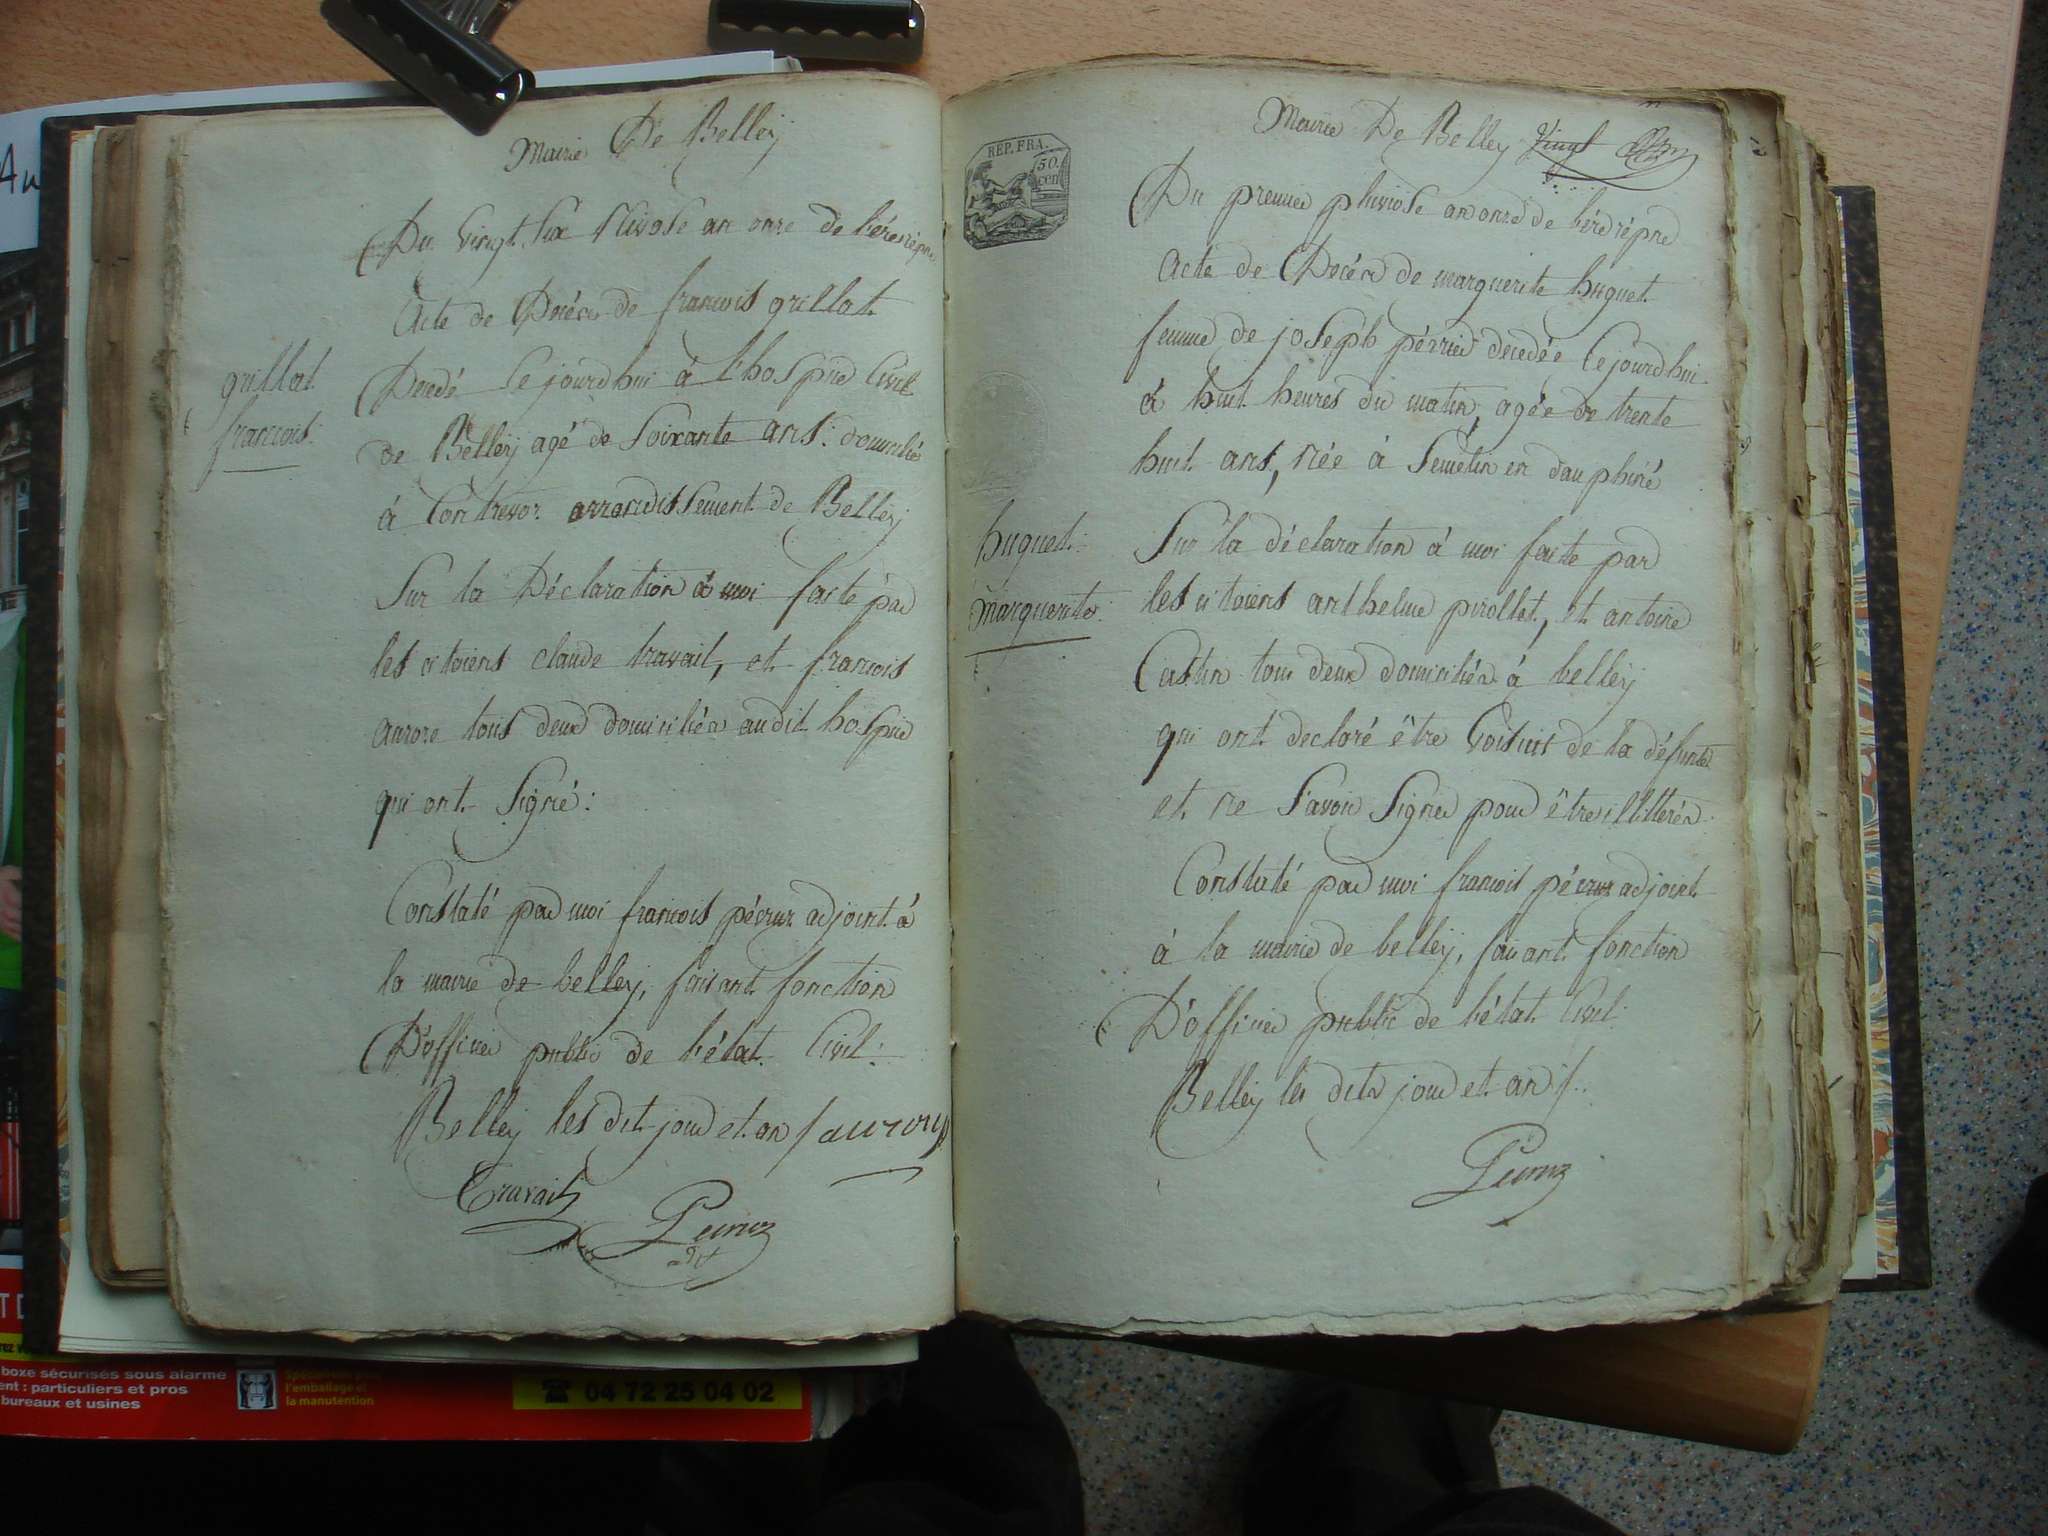 Mairie De Belley
Du vingt Six Nivose an onze de l'ére répne
Acte de Décés de francois grillat
grillat
francois:
Decedé Cejourdhui à l'hospice Civil
de Belley agé de Soixante ans: domicilié
à Contrevoz arrondissement de Belley
Sur la Déclaration à moi faite par
les citoiens claude travail, et francois
aurore tous deux domiciliés audit hospice
qui ont Signé:
Constaté par moi francois péeruz adjoint à
la mairie de belley, faisant fonction
D'officier public de l'état Civil:
Belley les dit jour et an / aurory
Travail
Peeruz
adjt
REP. FRA.
50
cen
Mairie De Belley Vingt
Du premier pluviose an onze de l'ére répne
Acte de Décés de marguerite huguet
femme de joseph périer decedée Cejourdhui
à huit heures du matin, agée de trente
huit ans, née à Semelin en dauphiné
huguet:
Marguerite:
Sur la déclaration à moi faite par
les citoiens anthelme pirollet, et antoine
Castin tous deux domiciliés à belley
qui ont declaré être Voisins de la défunte
et ne Savoir Signer pour être illitterés
Constaté par moi francois péeruz adjoint
à la mairie de belley, faisant fonction
D'officier public de l'état Civil:
Belley les dits jour et an /.
Peeruz
Au
boxe sécurisés sous alarme
ent : particuliers et pros
bureaux et usines
l'emballage et
la manutention
☎ 04 72 25 04 02